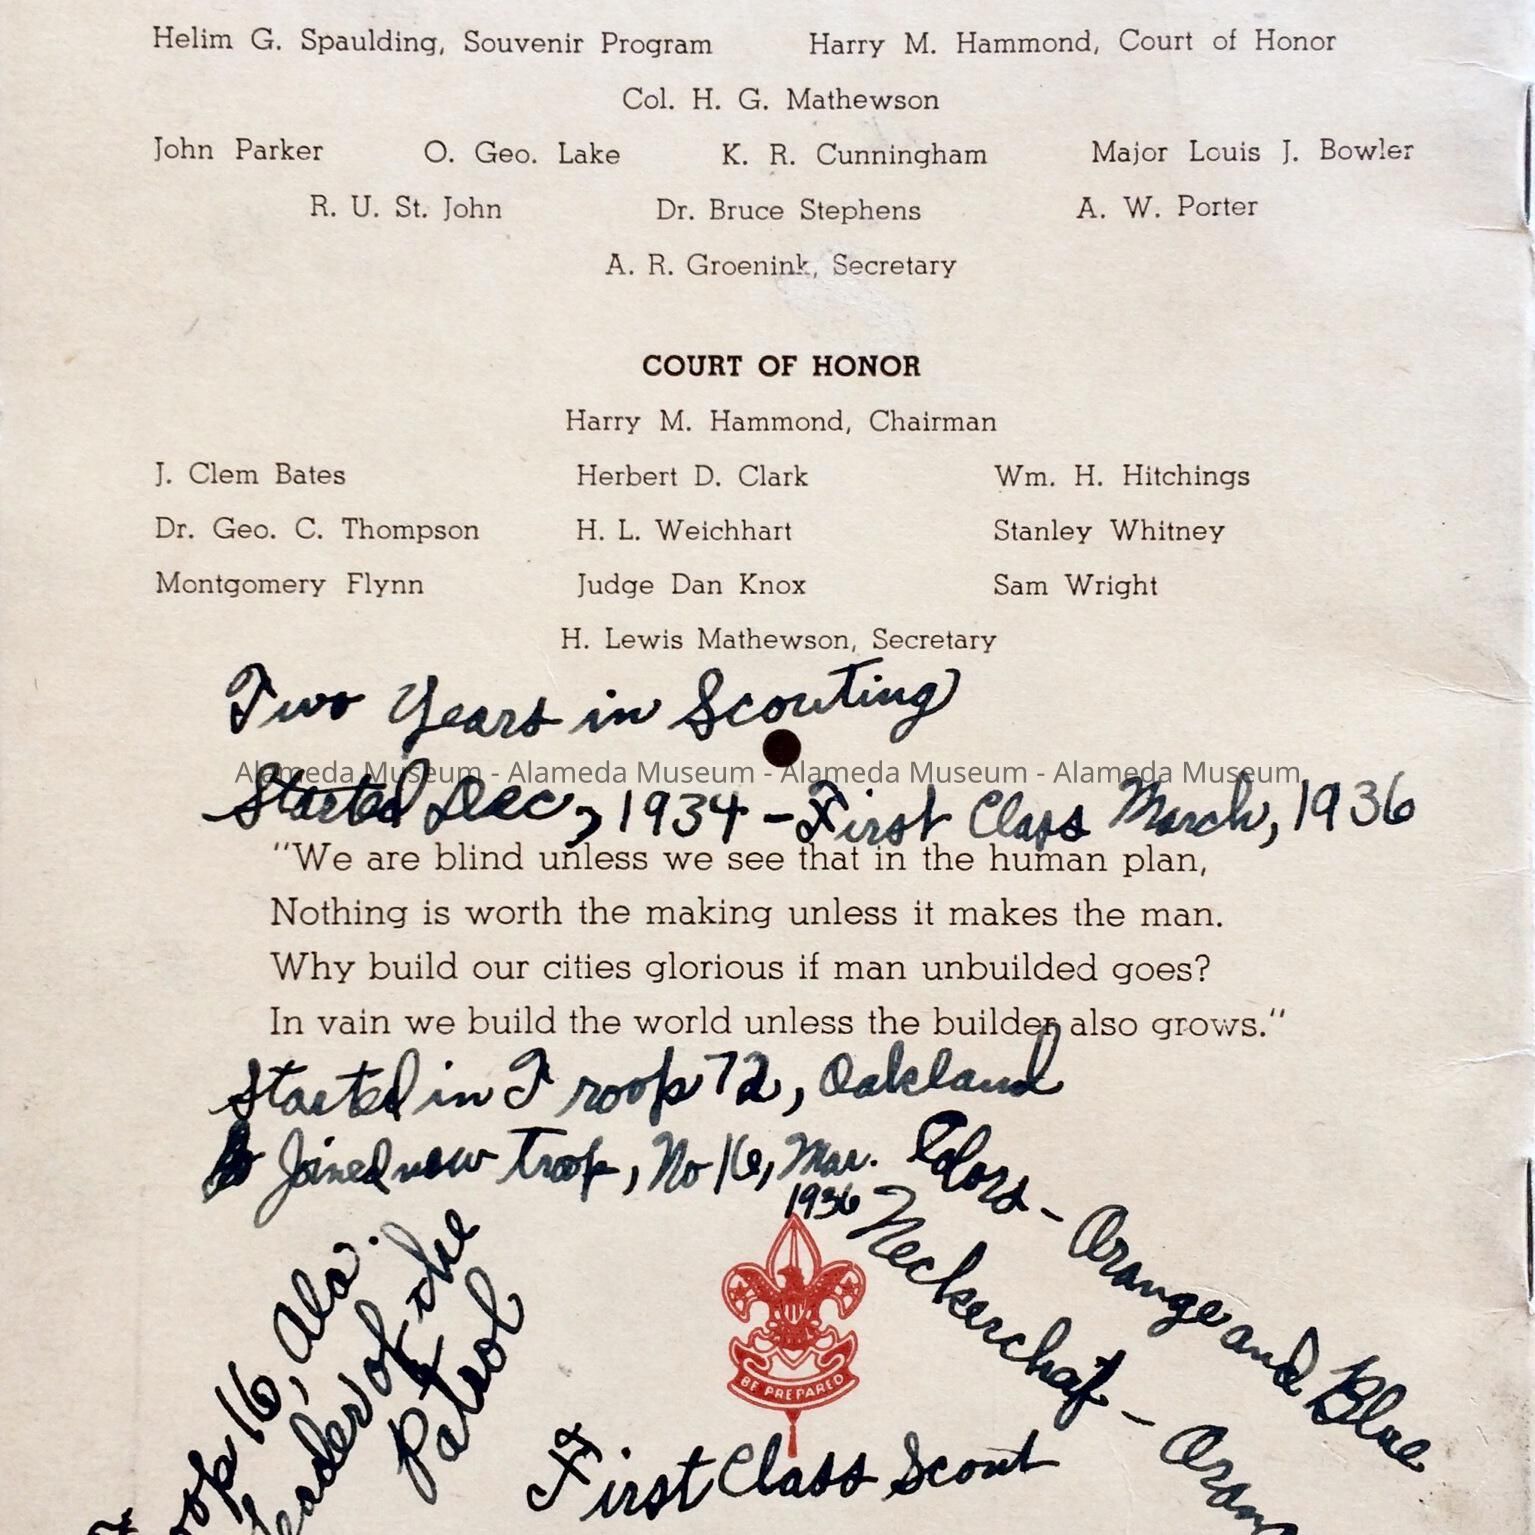 Helim G. Spaulding, Souvenir Program Harry M. Hammond, Court of Honor
Col. H. G. Mathewson
John Parker O. Geo. Lake K. R. Cunningham Major Louis J. Bowler
R. U. St. John Dr. Bruce Stephens A. W. Porter
A. R. Groenink, Secretary
COURT OF HONOR
Harry M. Hammond, Chairman
J. Clem Bates Herbert D. Clark Wm. H. Hitchings
Dr. Geo. C. Thompson H. L. Weichhart Stanley Whitney
Montgomery Flynn Judge Dan Knox Sam Wright
H. Lewis Mathewson, Secretary
Two Years in Scouting
Alameda Museum - Alameda Museum - Alameda Museum - Alameda Museum
Started Dec, 1934 - First Class March, 1936
"We are blind unless we see that in the human plan,
Nothing is worth the making unless it makes the man.
Why build our cities glorious if man unbuilded goes?
In vain we build the world unless the builder also grows."
Started in Troop 72, Oakland
Joined new troop, No 16, Mar. 1936
Colors - Orange and Blue
Neckerchaf -
Troop 16, Ala.
Leader of the
Patrol
BE PREPARED
First Class Scout